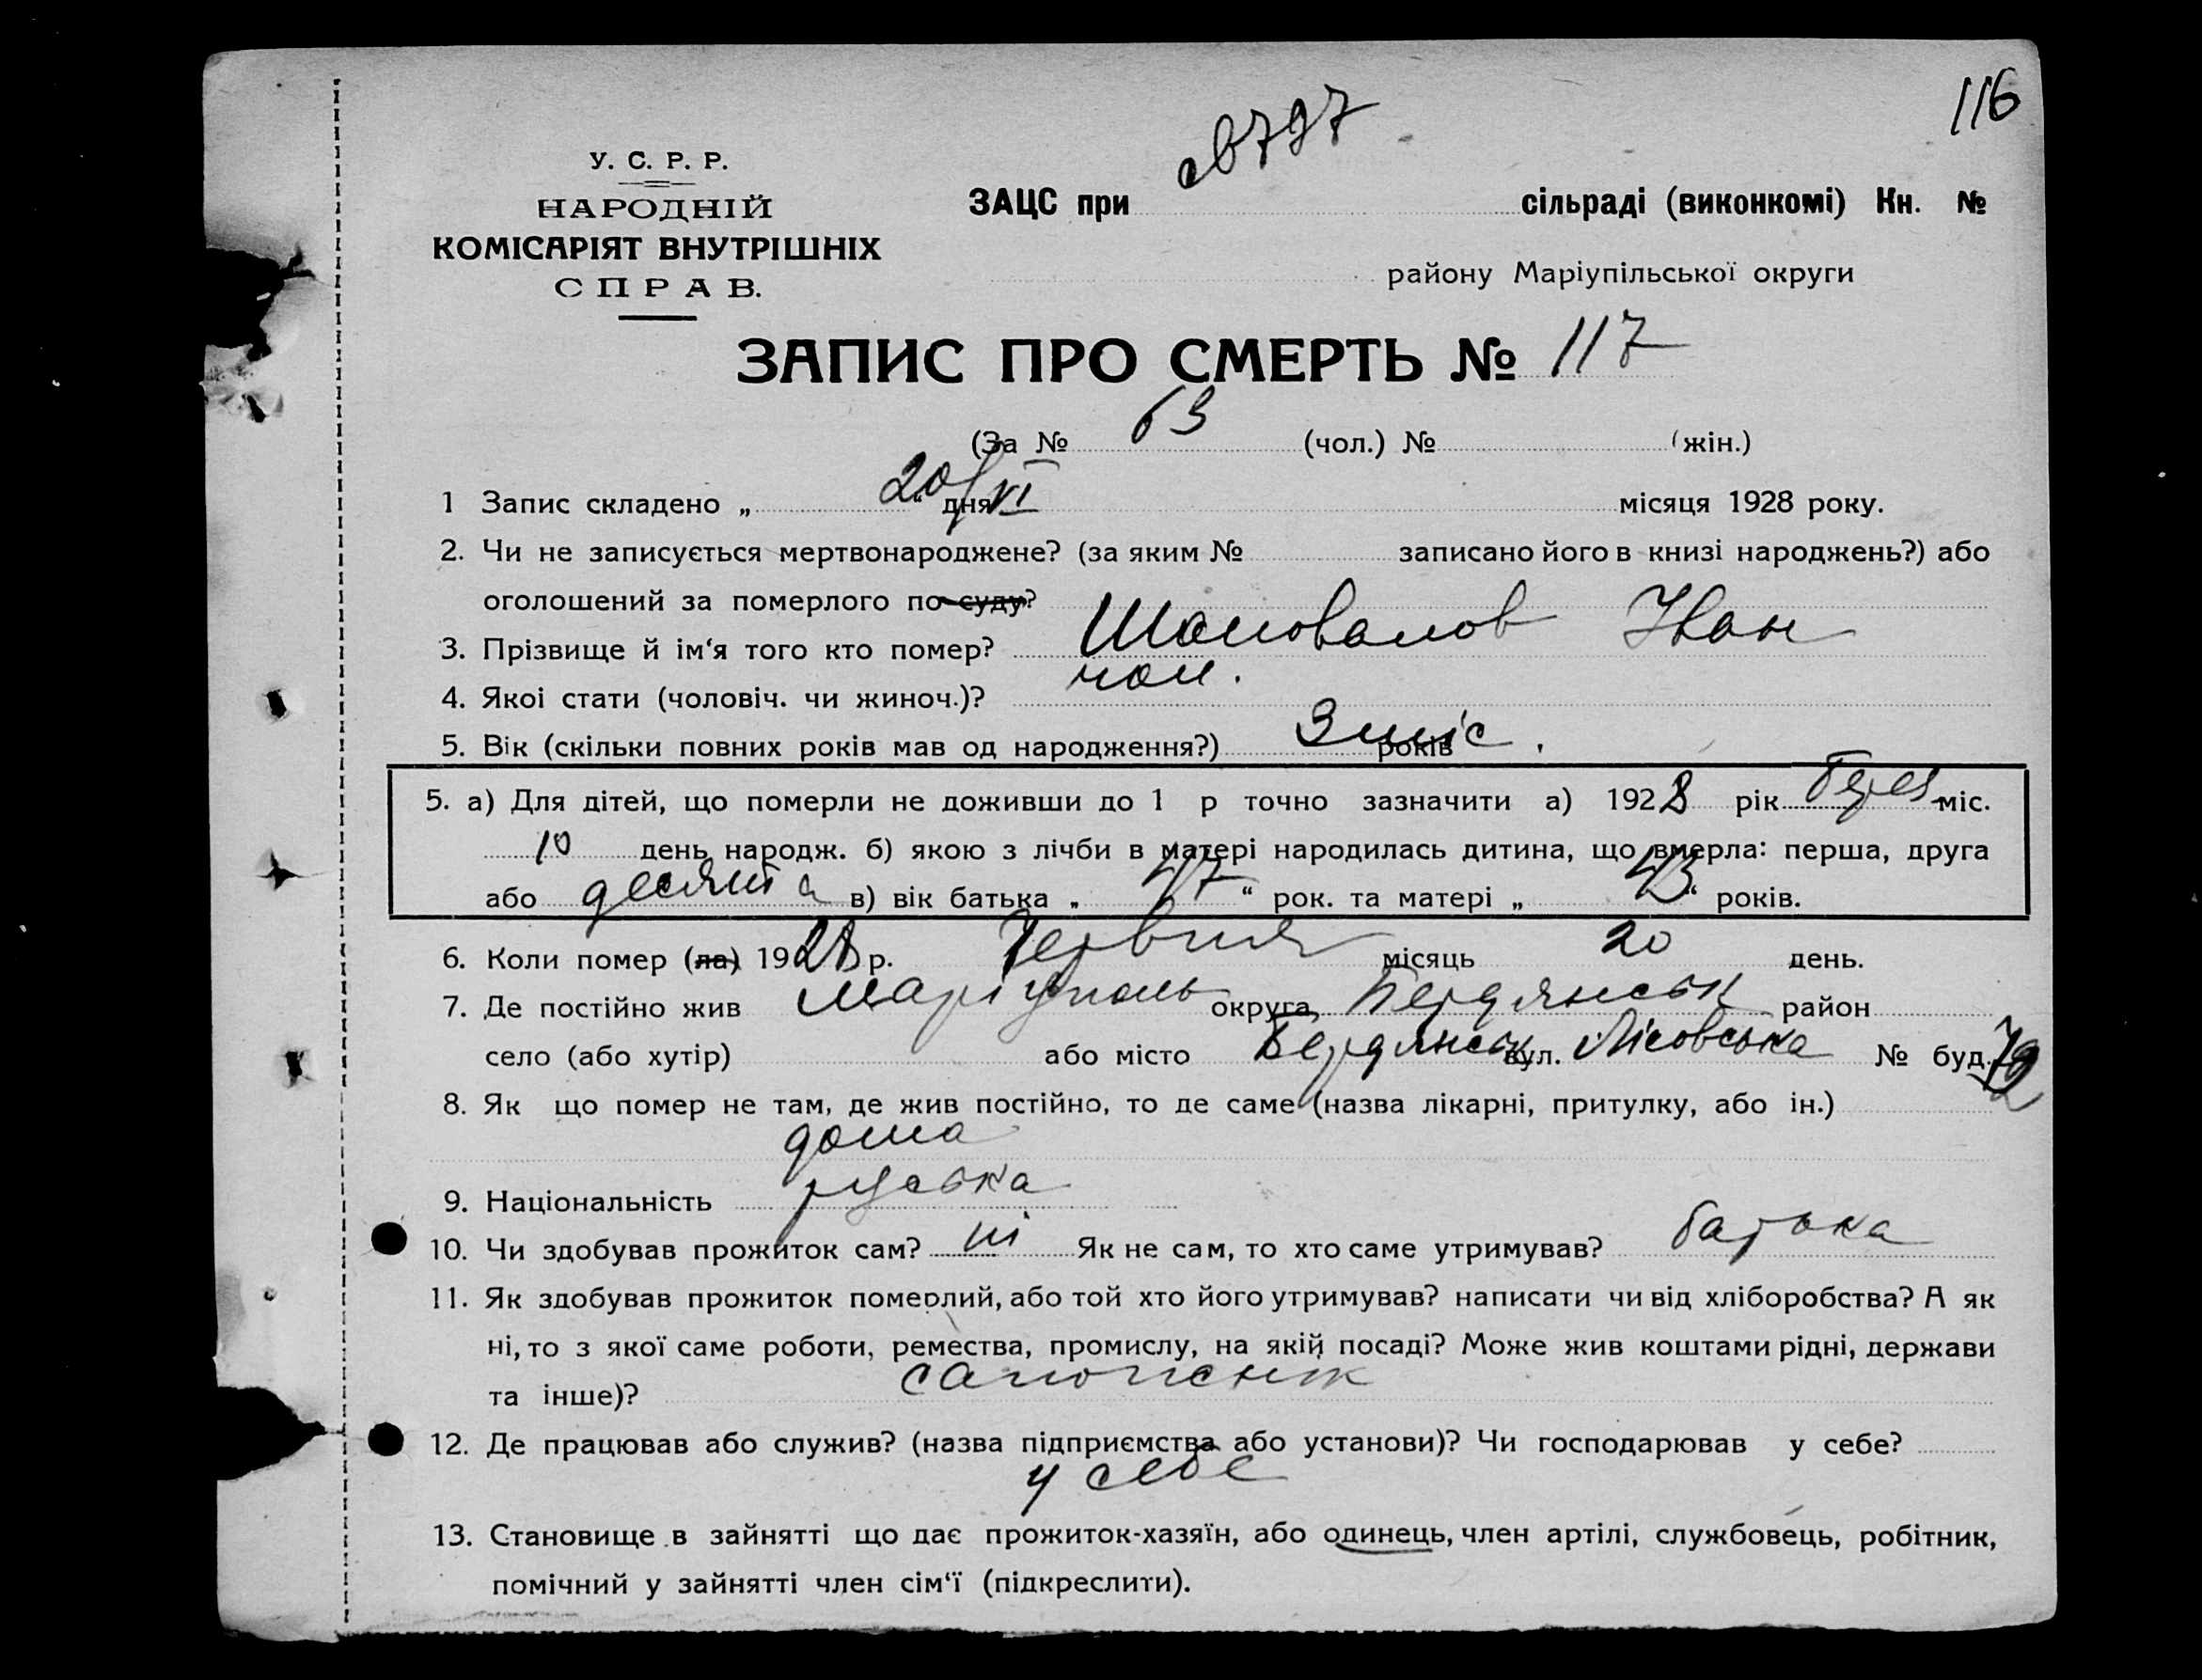 116
У. С. Р. Р.
НАРОДНІЙ
КОМІСАРІЯТ ВНУТРІШНІХ
СПРАВ.
ЗАЦС при сільраді (виконкомі) Кн. №
району Маріупільської округи
ЗАПИС ПРО СМЕРТЬ № 117
(За № 63 (чол.) № (жін.)
1 Запис складено „ 20/VI “ дня місяця 1928 року.
2. Чи не записується мертвонароджене? (за яким № записано його в книзі народжень?) або
оголошений за померлого по суду?
3. Прізвище й ім‘я того кто помер? Шаповалов Іван
4. Якоі стати (чоловіч. чи жиноч.)? чол.
5. Вік (скільки повних років мав од народження?) 3 міс. років
5. а) Для дітей, що померли не доживши до 1 р точно зазначити а) 1928 рік Берез міс.
10 день народж. б) якою з лічби в матері народилась дитина, що вмерла: перша, друга
або десята в) вік батька „ 47 “ рок. та матері „ 43 “ років.
6. Коли помер (ла) 1928 р. Червня місяць 20 день.
7. Де постійно жив Маріуполь округа, Бердянськ район
село (або хутір) або місто Бердянськ вул. Лісовська № буд. 72
8. Як що помер не там, де жив постійно, то де саме (назва лікарні, притулку, або ін.)
дома
9. Національність руська
10. Чи здобував прожиток сам? ні Як не сам, то хто саме утримував? батька
11. Як здобував прожиток померлий, або той хто його утримував? написати чи від хліборобства? А як
ні, то з якої саме роботи, ремества, промислу, на якій посаді? Може жив коштами рідні, держави
та інше)? сапожник
12. Де працював або служив? (назва підприємства або установи)? Чи господарював у себе?
у себе
13. Становище в зайнятті що дає прожиток-хазяїн, або одинець, член артілі, службовець, робітник,
помічний у зайнятті член сім‘ї (підкреслити).